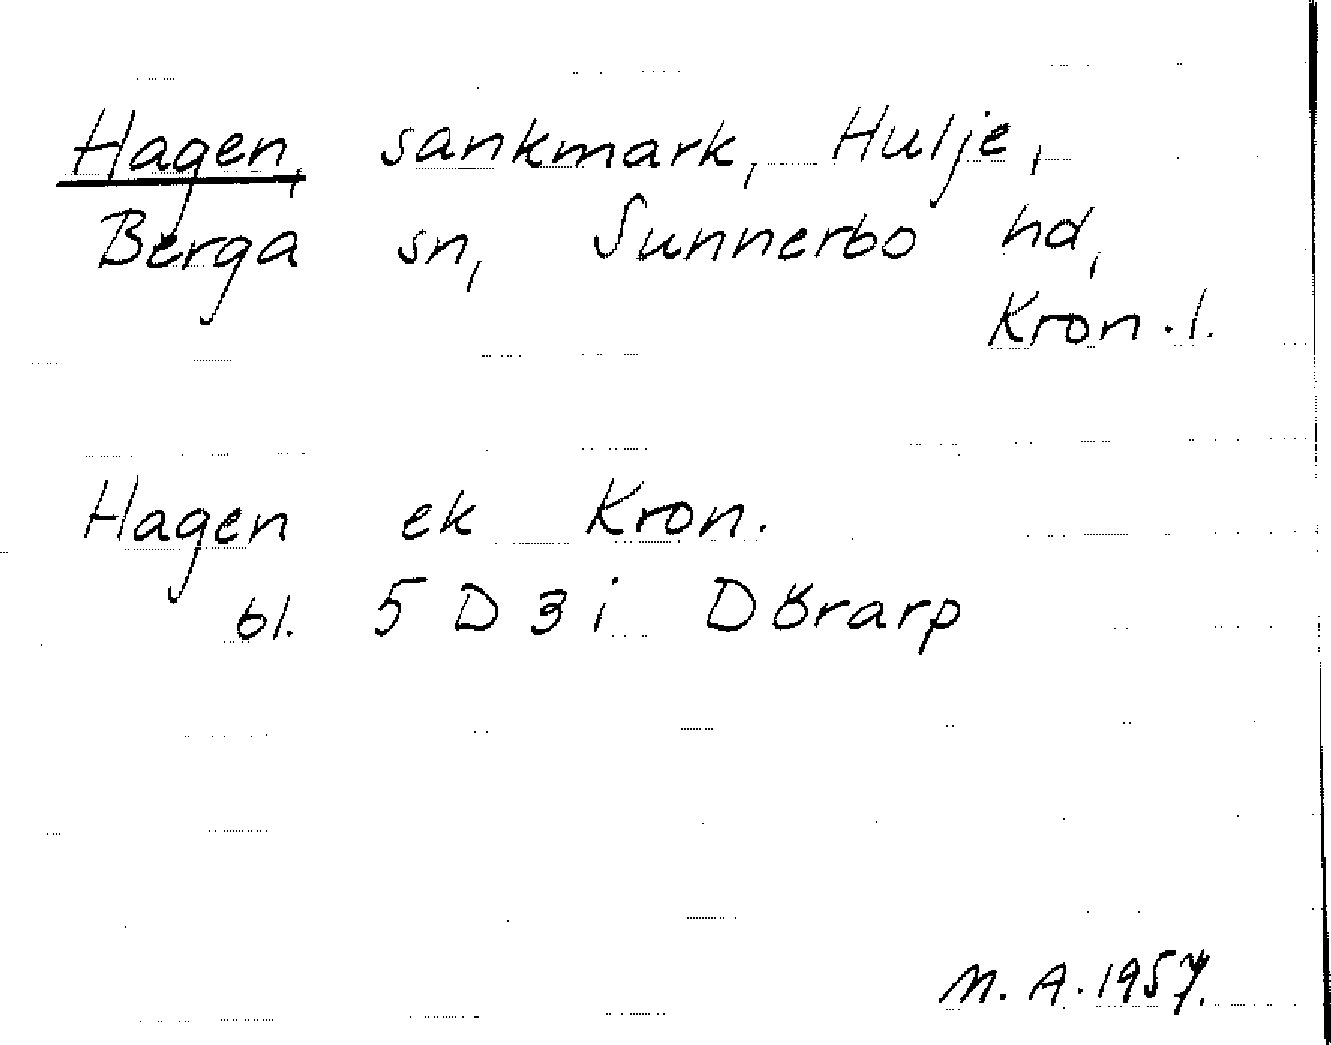 Hagen, sankmark, Hulje,
Berga sn, Sunnerbo hd,
Kron. l.
Hagen ek Kron.
bl. 5 D 3 i Dörarp
M. A. 1957.